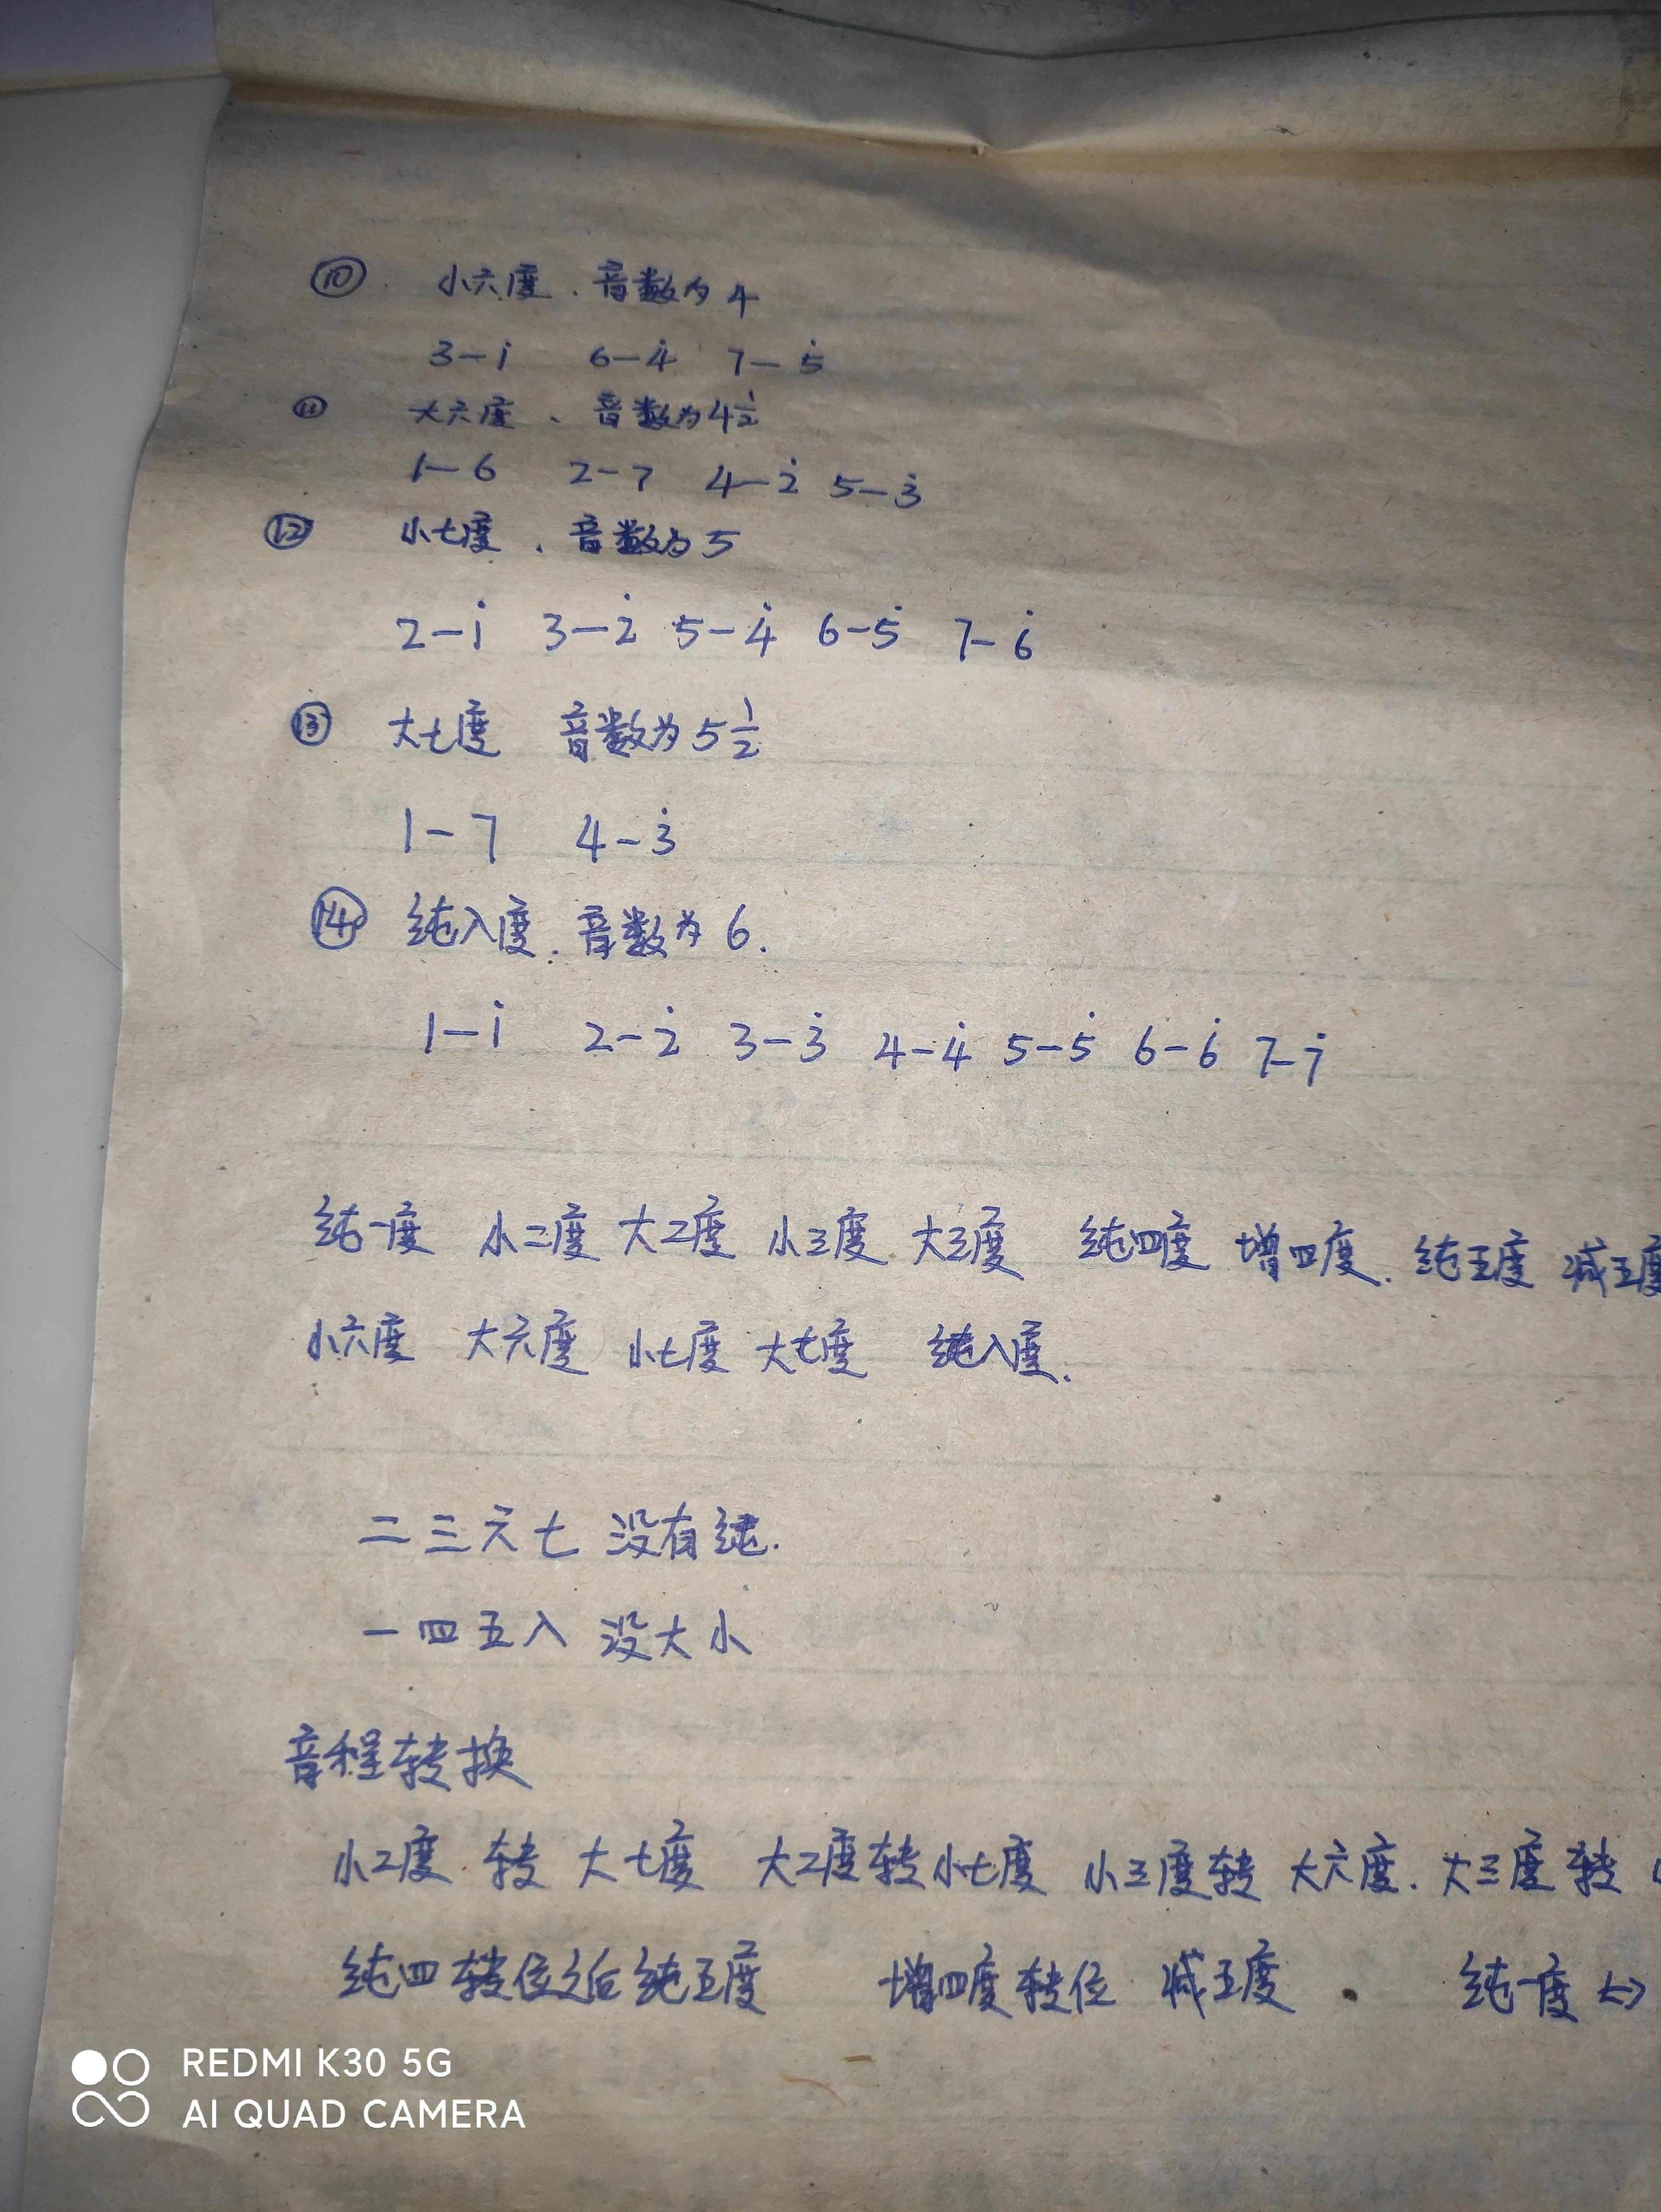 ⑩ 小六度、音数为4
3-i̇ 6-4̇ 7-5̇
⑪ 大六度、音数为4½
1-6 2-7 4-2̇ 5-3̇
⑫ 小七度、音数为5
2-i̇ 3-2̇ 5-4̇ 6-5̇ 7-6̇
⑬ 大七度 音数为5½
1-7 4-3̇
⑭ 纯入度.音数为6.
1-i̇ 2-2̇ 3-3̇ 4-4̇ 5-5̇ 6-6̇ 7-7̇
纯一度 小二度 大二度 小三度 大三度 纯四度 增四度. 纯五度 减五度
小六度 大六度 小七度 大七度 纯入度.
二三六七 没有纯.
一四五入 没大小
音程转换
小二度 转 大七度 大二度转小七度 小三度转 大六度. 大三度 转
纯四转位之后纯五度 增四度转位 减五度. 纯一度 ↔
REDMI K30 5G
AI QUAD CAMERA